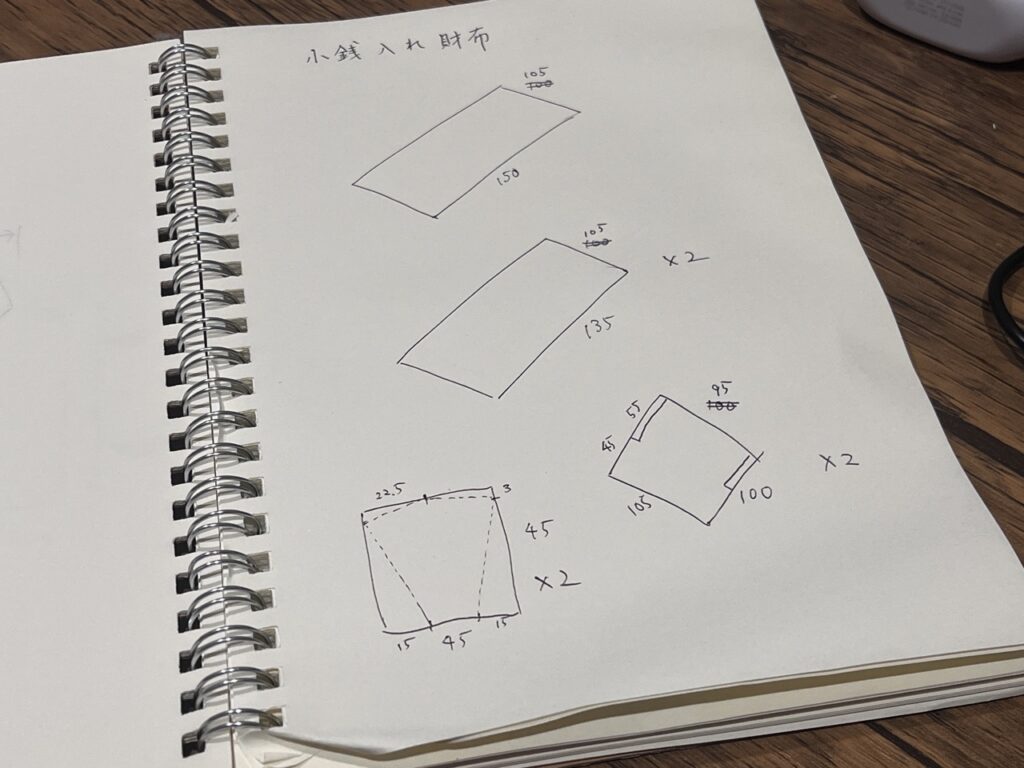 小銭入れ財布
105
100
150
105
100
×2
135
95
100
55
45
105
100
×2
22.5
3
45
×2
15 45 15